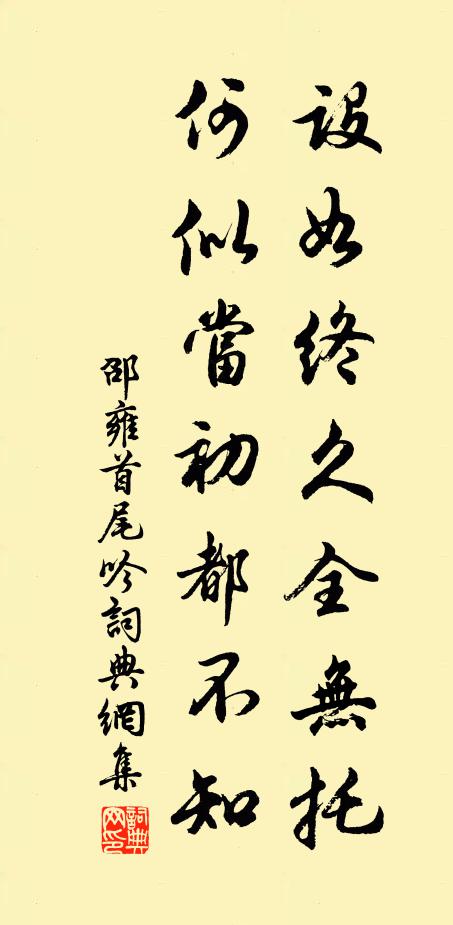 設如終久全無托
何似當初都不知
邵雍首尾吟詞典網集
詞典網印